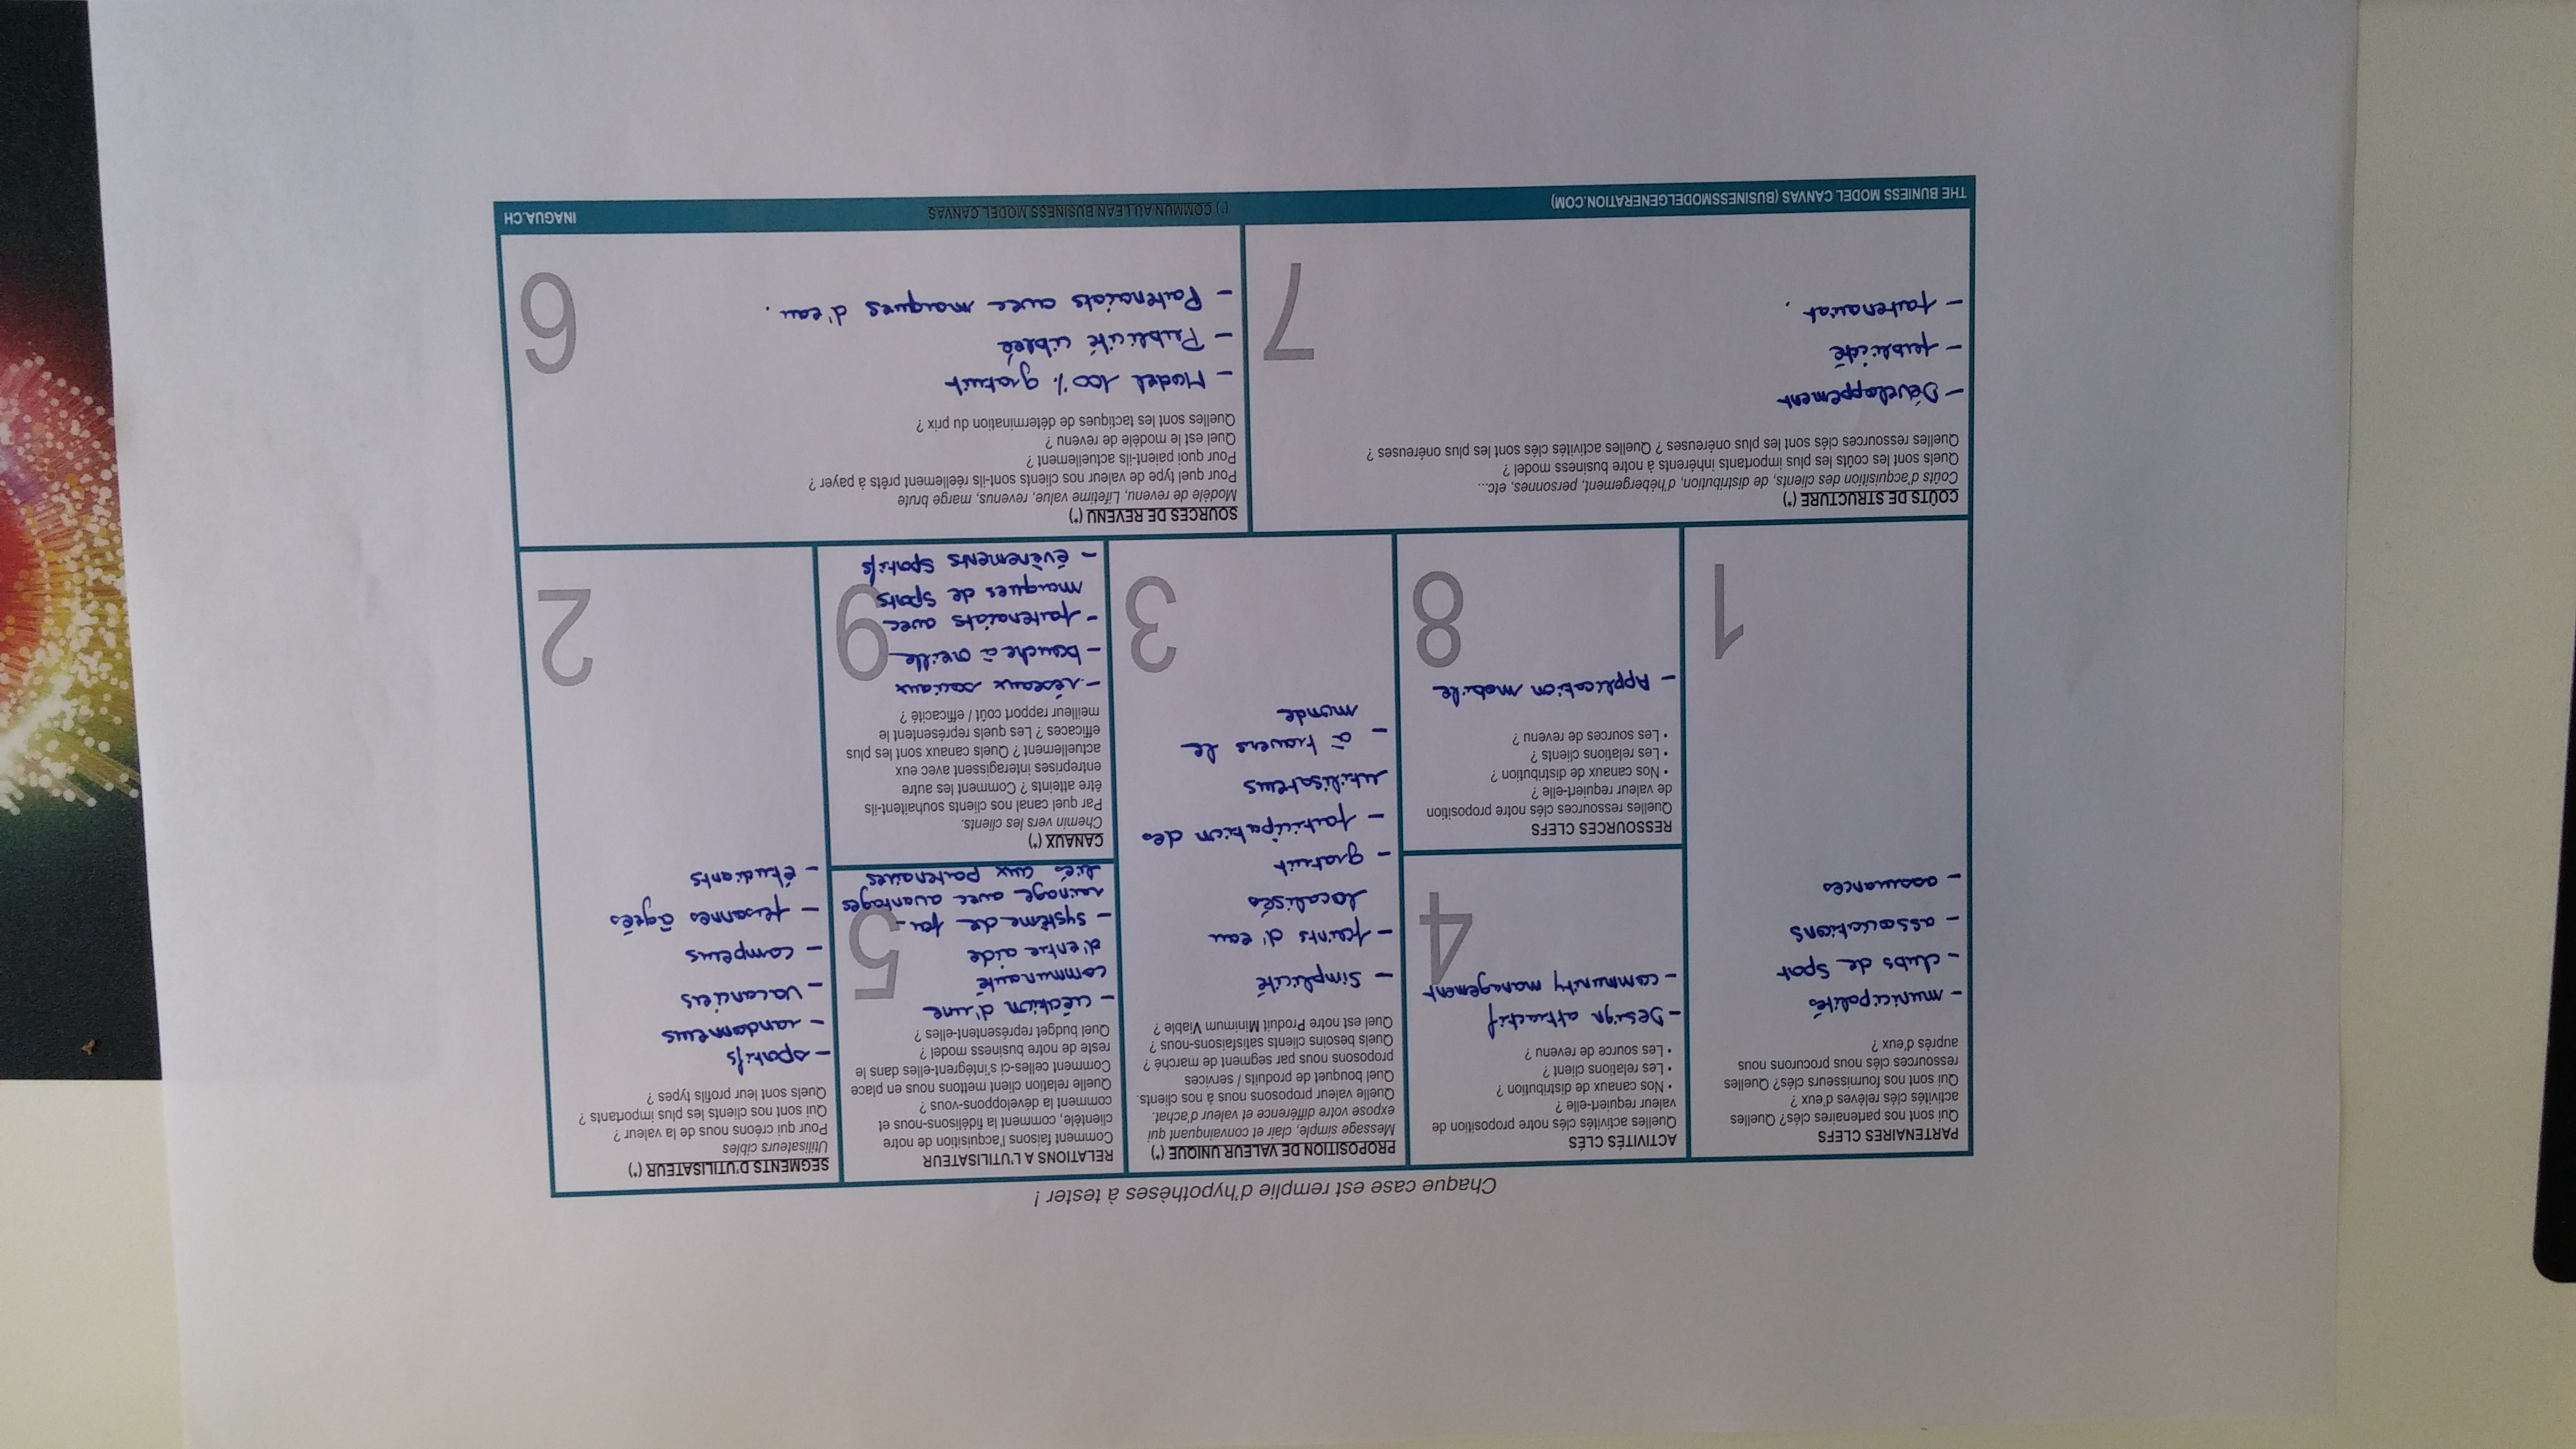 Chaque case est remplie d'hypothèses à tester !
PARTENAIRES CLEFS
Qui sont nos partenaires clés? Quelles
activités clés relèves d'eux ?
Qui sont nos fournisseurs clés? Quelles
ressources clés nous procurons nous
auprès d'eux ?
- municipalités
- clubs de sport
- associations
- assurances
1
ACTIVITÉS CLÉS
Quelles activités clés notre proposition de
valeur requiert-elle ?
• Nos canaux de distribution ?
• Les relations client ?
• Les source de revenu ?
- Design attractif
- community management
4
RESSOURCES CLEFS
Quelles ressources clés notre proposition
de valeur requiert-elle ?
• Nos canaux de distribution ?
• Les relations clients ?
• Les sources de revenu ?
- Application mobile
8
PROPOSITION DE VALEUR UNIQUE (*)
Message simple, clair et convainquant qui
expose votre différence et valeur d'achat.
Quelle valeur proposons nous à nos clients.
Quel bouquet de produits / services
proposons nous par segment de marché ?
Quels besoins clients satisfaisons-nous ?
Quel est notre Produit Minimum Viable ?
- simplicité
- points d'eau
localisés
- gratuit
- participation des
utilisateurs
- à travers le
monde
3
RELATIONS A L'UTILISATEUR
Comment faisons l'acquisition de notre
clientèle, comment la fidélisons-nous et
comment la développons-vous ?
Quelle relation client mettons nous en place
Comment celles-ci s'intègrent-elles dans le
reste de notre business model ?
Quel budget représentent-elles ?
- création d'une
communauté
d'entre aide
- système de par-
rainage avec avantages
liés aux partenaires
5
CANAUX (*)
Chemin vers les clients.
Par quel canal nos clients souhaitent-ils
être atteints ? Comment les autre
entreprises interagissent avec eux
actuellement ? Quels canaux sont les plus
efficaces ? Les quels représentent le
meilleur rapport coût / efficacité ?
- réseaux sociaux
- bouche à oreille
- partenariats avec
marques de sports
- évènements sportifs
9
SEGMENTS D'UTILISATEUR (*)
Utilisateurs cibles
Pour qui créons nous de la valeur ?
Qui sont nos clients les plus importants ?
Quels sont leur profils types ?
- sportifs
- randonneurs
- vacanciers
- campeurs
- personnes âgées
- étudiants
2
COÛTS DE STRUCTURE (*)
Coûts d'acquisition des clients, de distribution, d'hébergement, personnes, etc...
Quels sont les coûts les plus importants inhérents à notre business model ?
Quelles ressources clés sont les plus onéreuses ? Quelles activités clés sont les plus onéreuses ?
- Développement
- publicité
- partenariat.
7
SOURCES DE REVENU (*)
Modèle de revenu, Lifetime value, revenus, marge brute
Pour quel type de valeur nos clients sont-ils réellement prêts à payer ?
Pour quoi paient-ils actuellement ?
Quel est le modèle de revenu ?
Quelles sont les tactiques de détermination du prix ?
- Model 100% gratuit
- Publicité ciblée
- Partenariats avec marques d'eau.
6
THE BUNIESS MODEL CANVAS (BUSINESSMODELGENERATION.COM)
(*) COMMUN AU LEAN BUSINESS MODEL CANVAS
INAGUA.CH